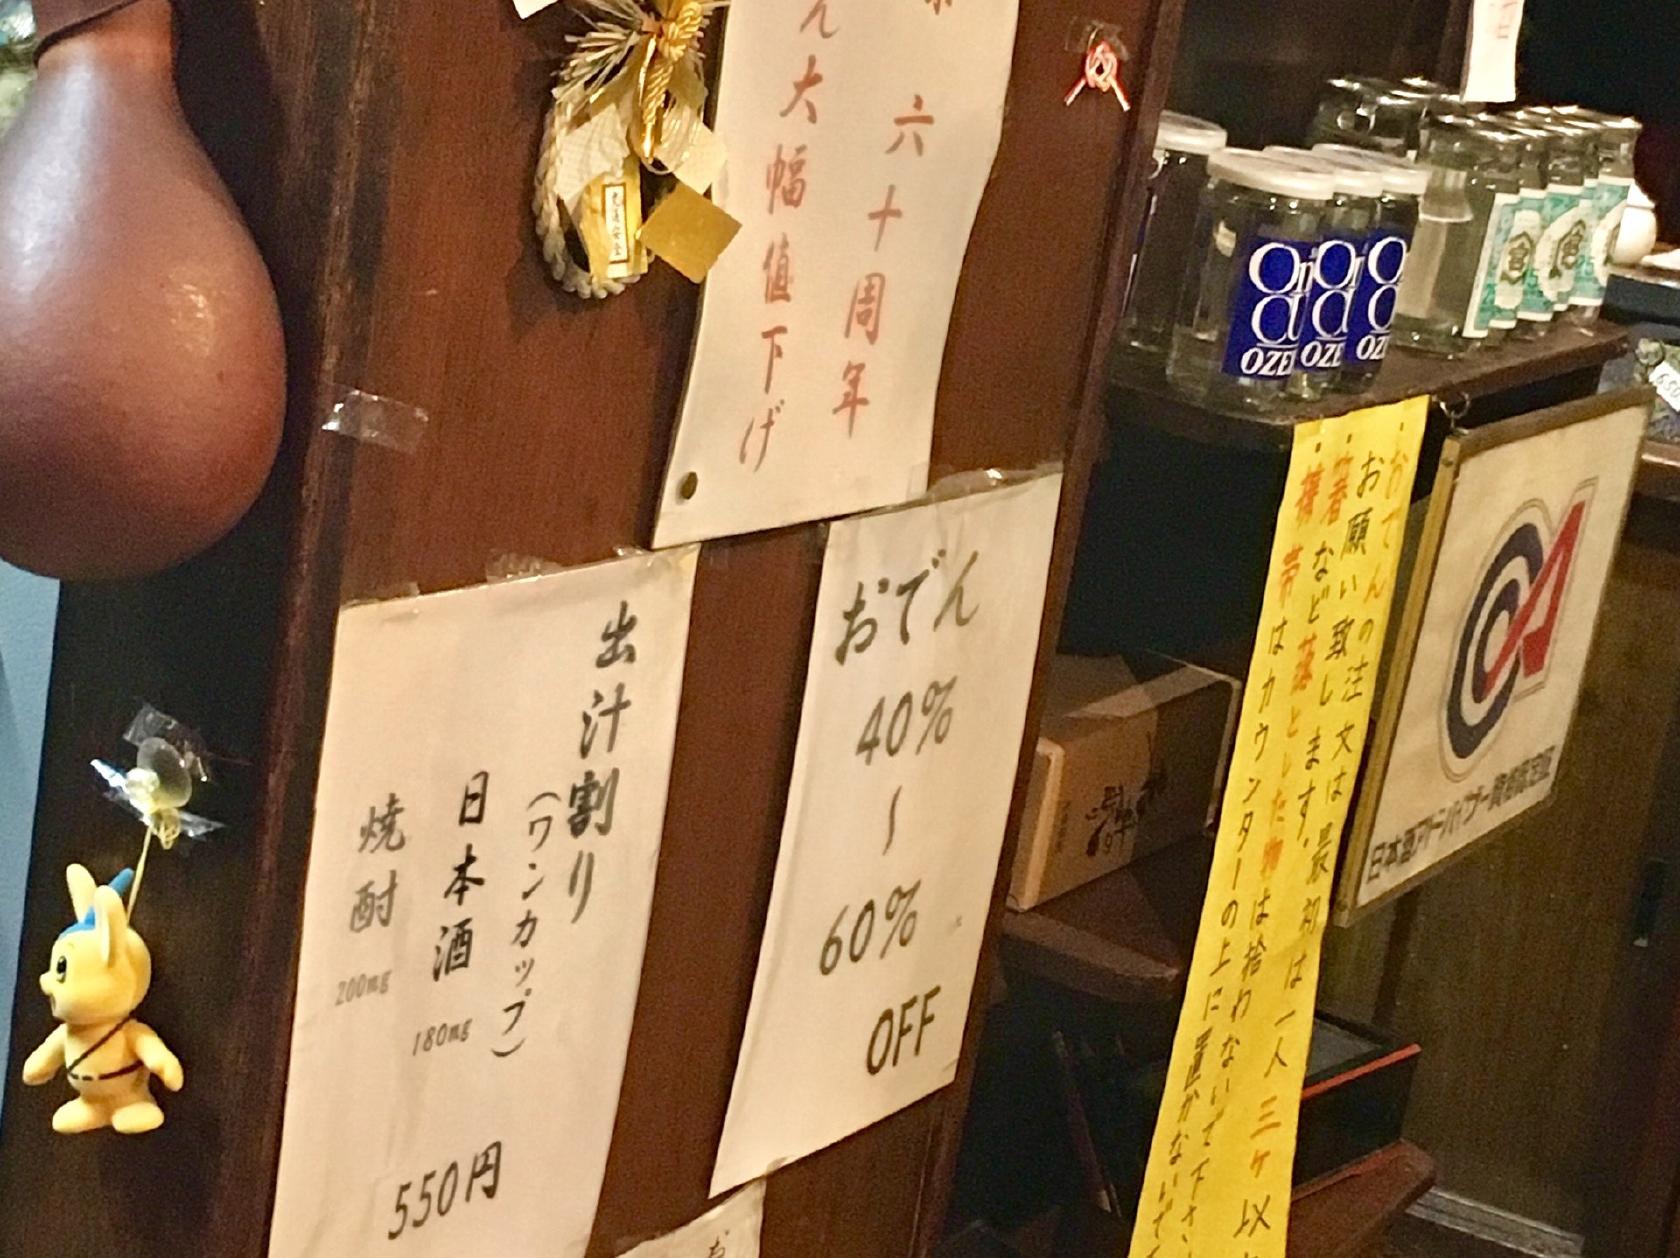 六十周年
ん大幅値下げ
おでん
40%
〜
60%
OFF
出汁割り
(ワンカップ)
日本酒 180mg
焼酎 200mg
550円
・おでんの注文は最初は一人三ケ以
お願い致します。
・箸など落とした物は拾わないで下さい
・携帯はカウンターの上に置かないで
日本酒アドバイザー資格認定店
OZE
OZE
OZ